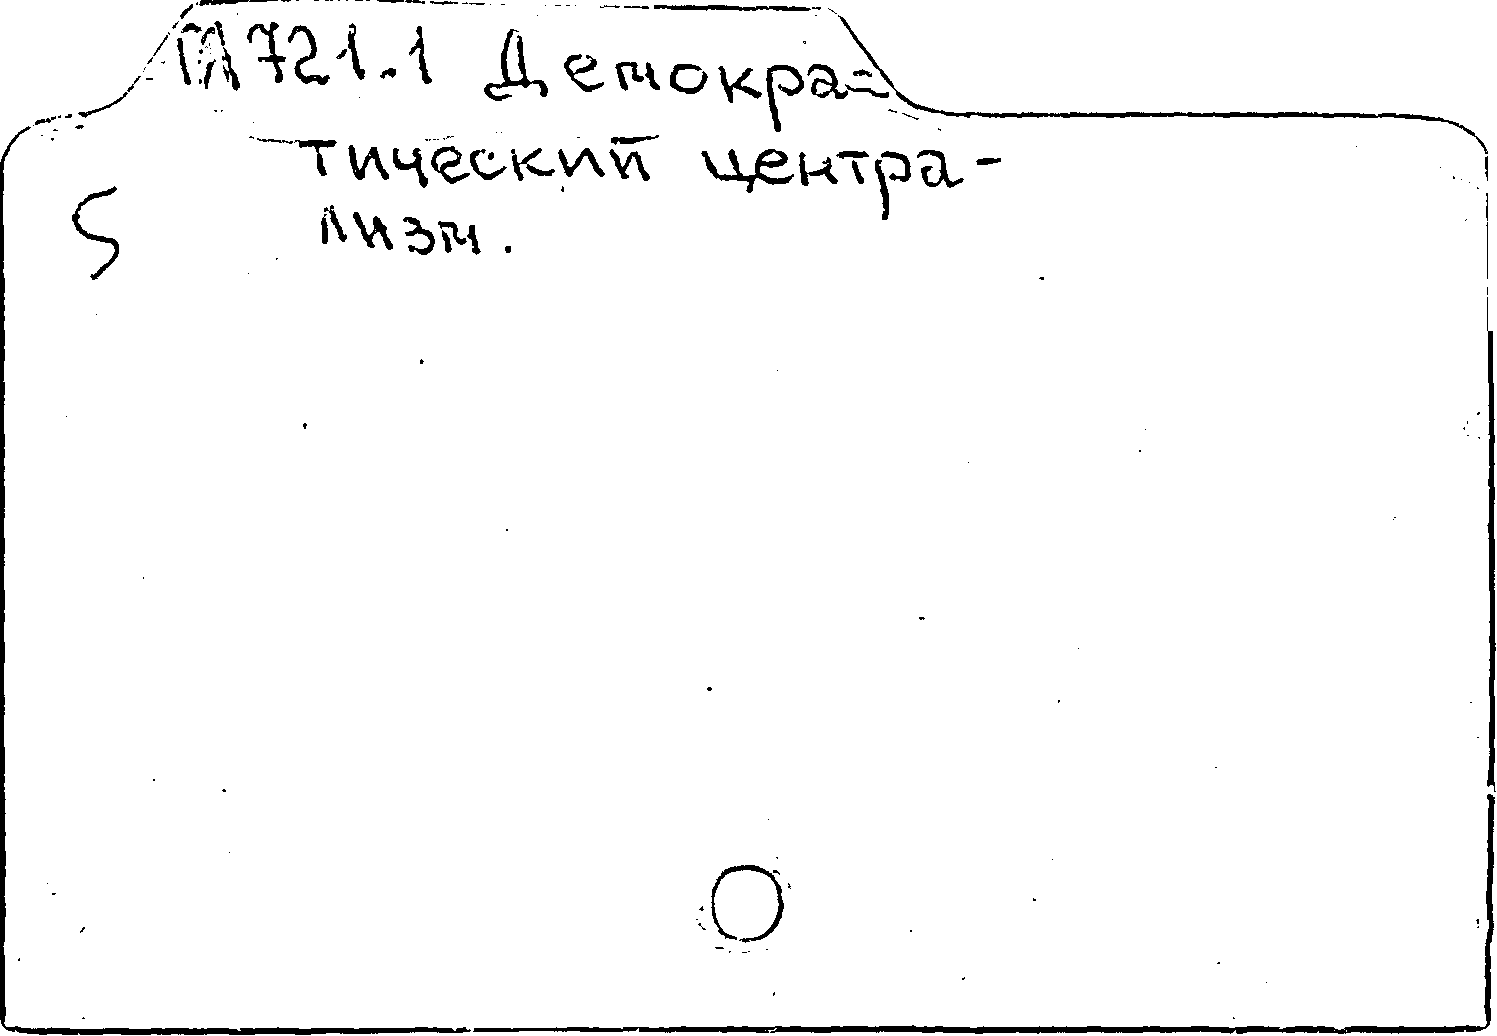 ГЛ721.1 Демокра-
тический центра-
лизм.
5